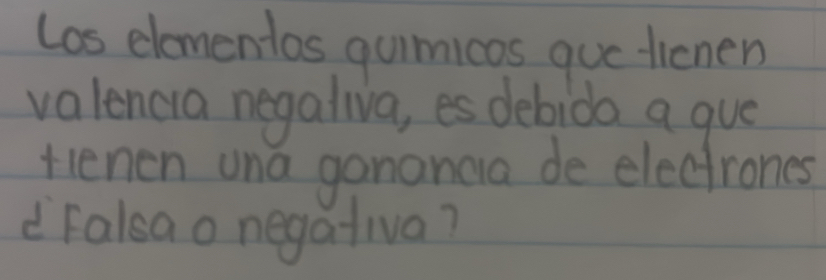 Los elementos quimicos que tienen
valencia negativa, es debido a que
tienen una ganancia de electrones
¿Falsa o negativa?